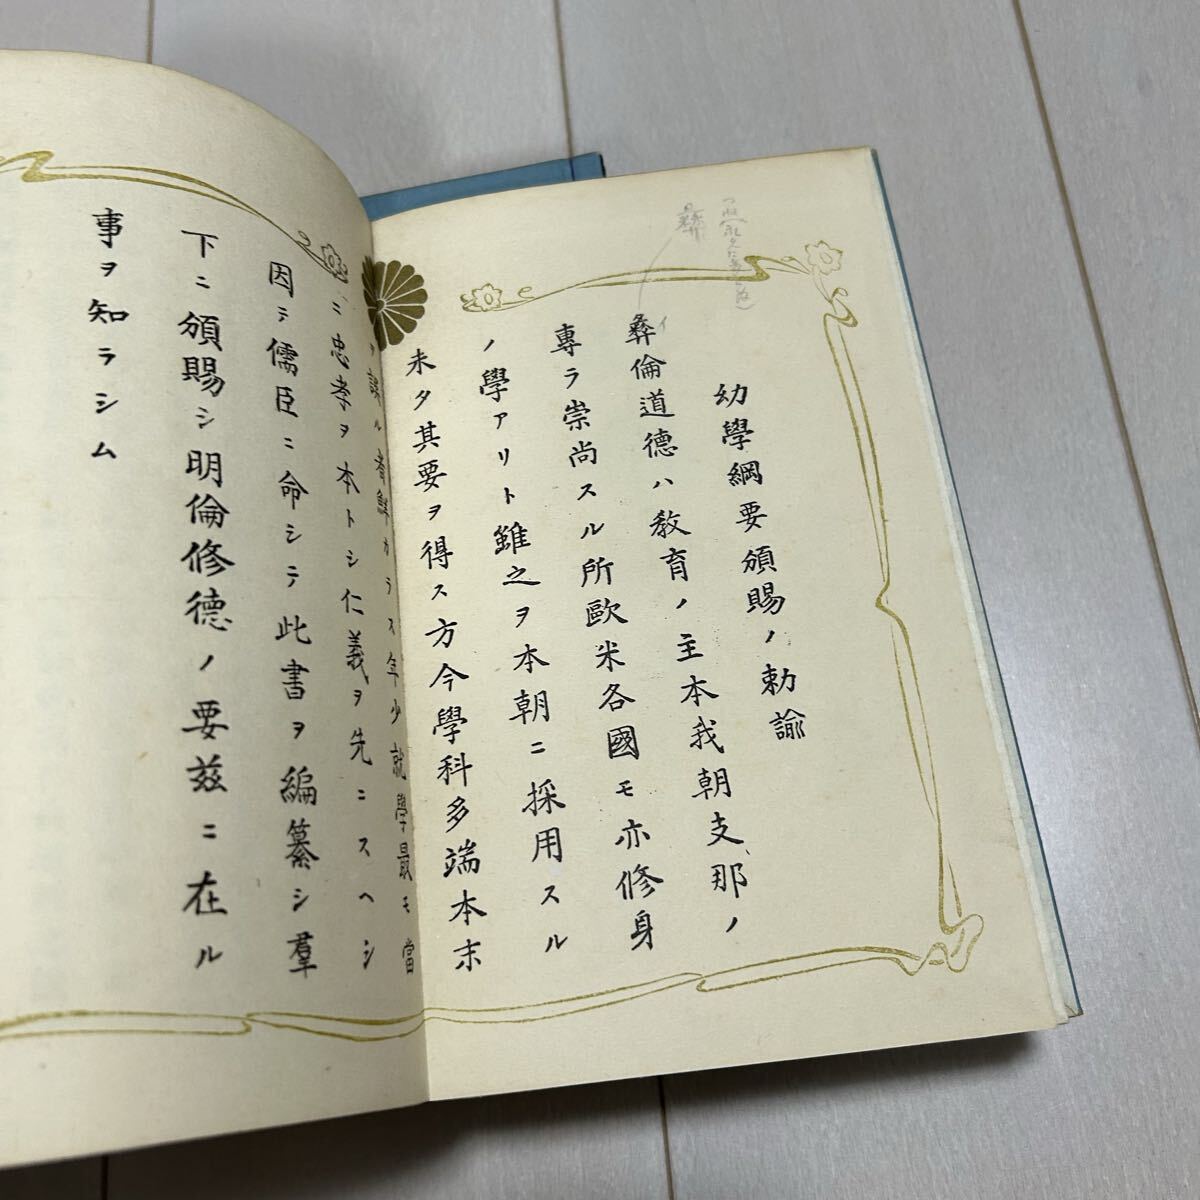 幼學綱要頒賜ノ勅諭
彝倫道德ハ敎育ノ主本我朝支那ノ
專ラ崇尚スル所歐米各國モ亦修身
ノ學アリト雖之ヲ本朝ニ採用スル
未タ其要ヲ得ス方今學科多端本末
ヲ誤ル者鮮カラス年少就學最モ當
ニ忠孝ヲ本トシ仁義ヲ先ニスヘシ
因テ儒臣ニ命シテ此書ヲ編纂シ羣
下ニ頒賜シ明倫修德ノ要茲ニ在ル
事ヲ知ラシム
彝
イ